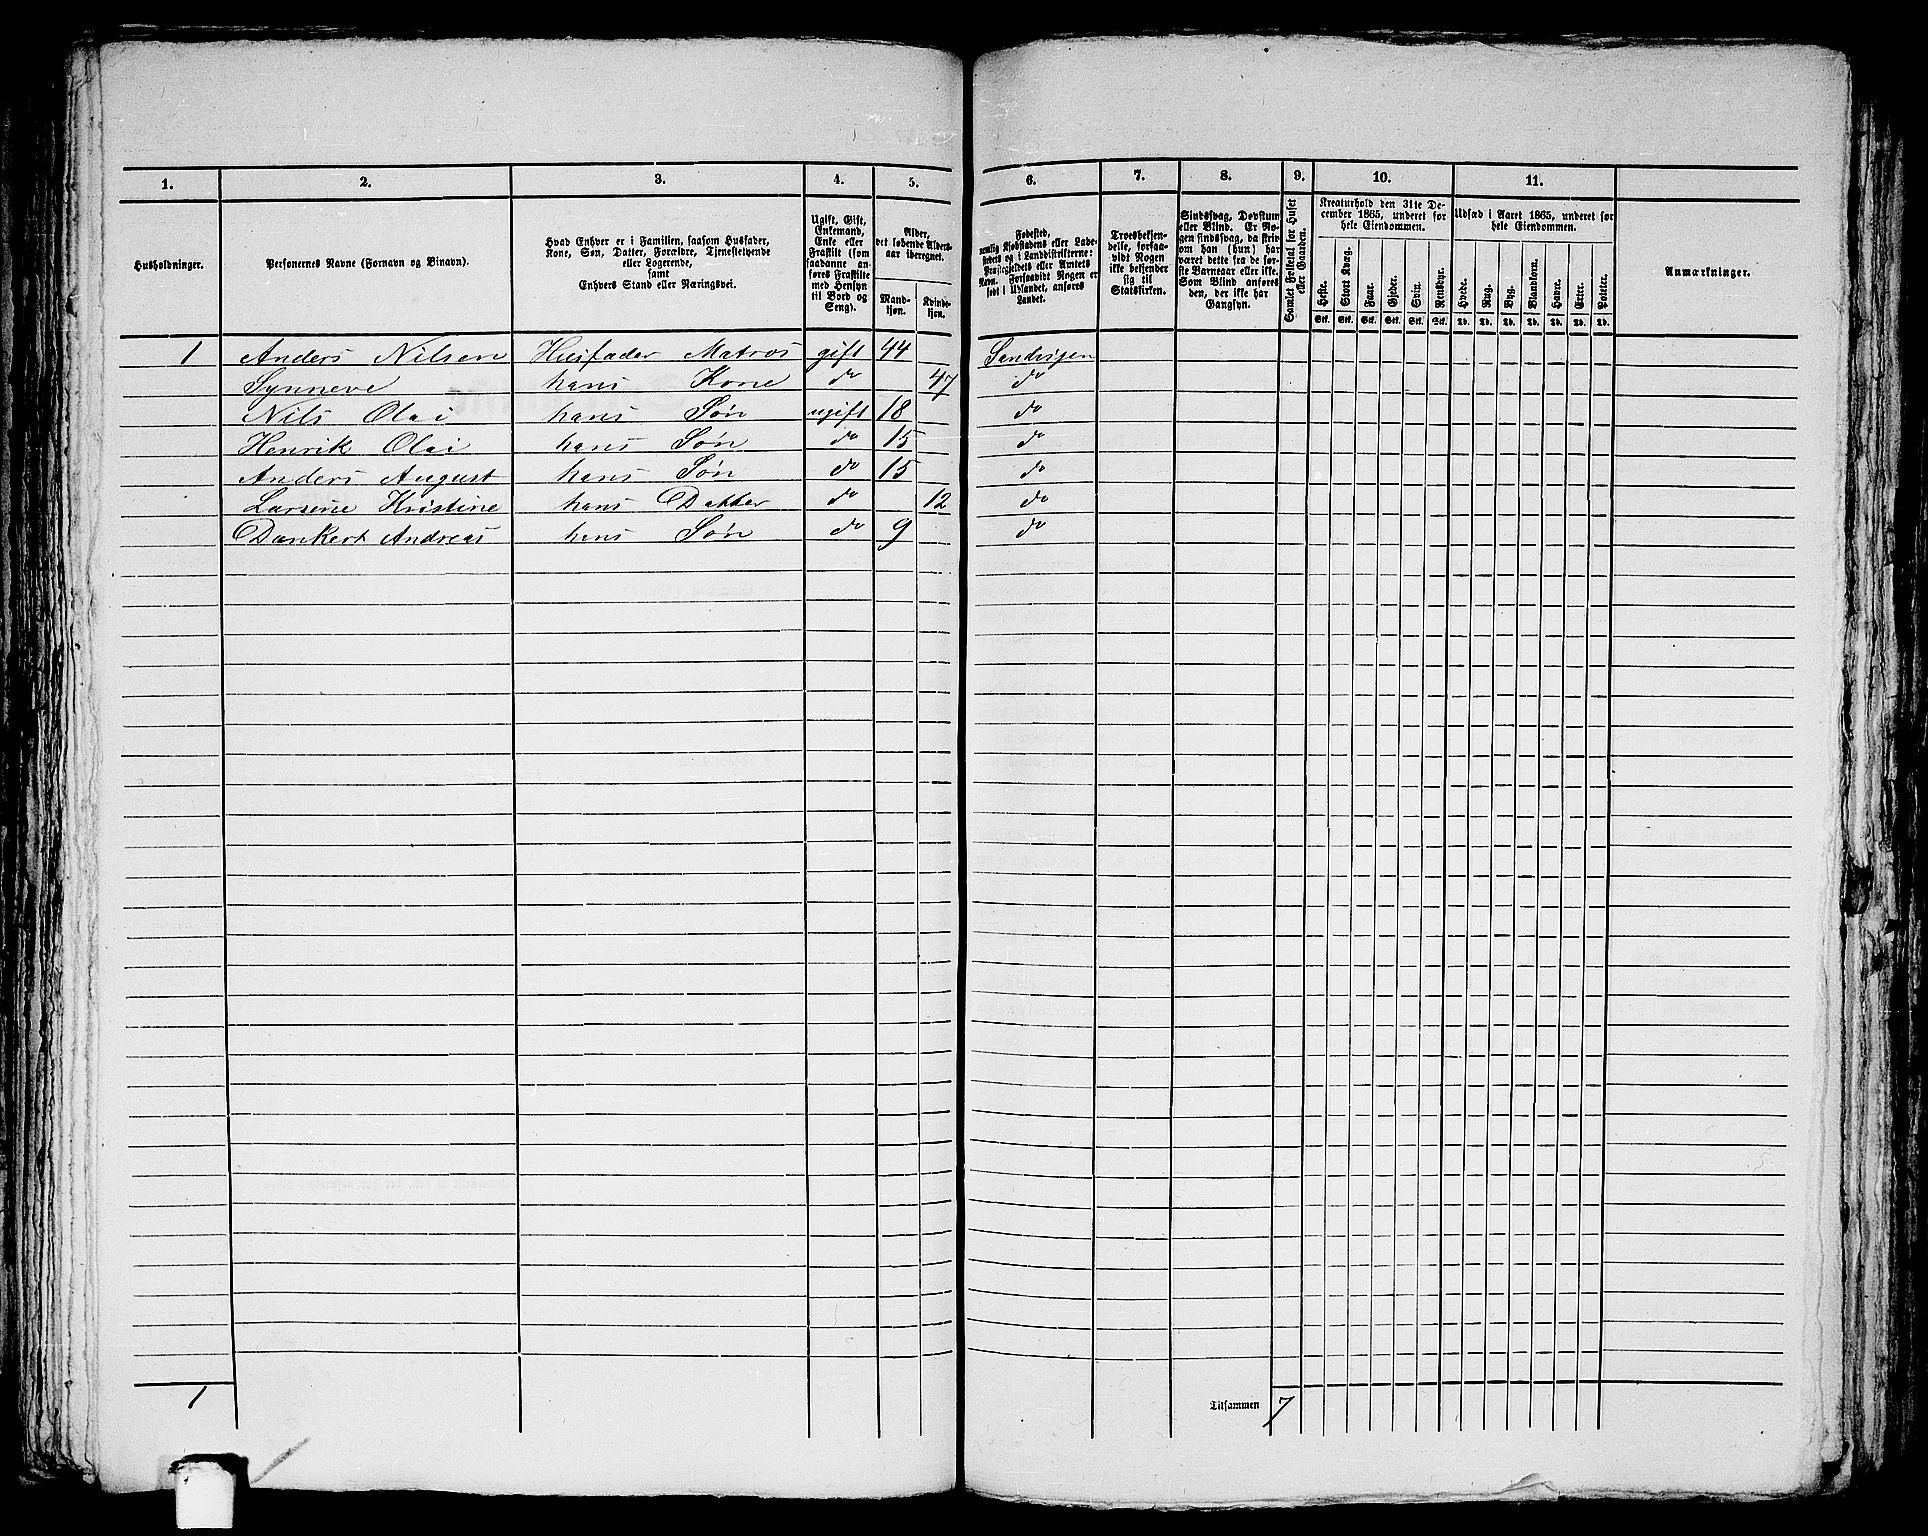 1. 2. 3. 4. 5. 6. 7. 8. 9. 10. 11.
Husholdninger.
Personernes Navne (Fornavn og Binavn).
Hvad Enhver er i Familien, saasom Husfader,
Kone, Søn, Datter, Forældre, Tjenestetyende
eller Logerende,
samt
Enhvers Stand eller Næringsvei.
Ugift, Gift,
Enkemand,
Enke eller
Fraskilt (som
saadanne an-
føres Fraskilte
med Hensyn
til Bord og
Seng).
Alder,
det løbende Alders-
aar iberegnet.
Mand-
kjøn.
Kvinde-
kjøn.
Fødested,
nemlig Kjøbstadens eller Lade-
stedets og i Landdistrikterne:
Præstegjeldets eller Amtets
Navn. Forsaavidt Nogen er
født i Udlandet, anføres
Landet.
Troesbekjen-
delse, forsaa-
vidt Nogen
ikke bekjender
sig til
Statskirken.
Sindssvag, Døvstum
eller Blind. Er No-
gen sindssvag, da skriv
om han (hun) har
været dette fra de før-
ste Barneaar eller ikke.
Som Blind anføres
den, der ikke har
Gangsyn.
Samlet Folketal for Huset
eller Gaarden.
Kreaturhold den 31te De-
cember 1865, underet for
hele Eiendommen.
Heste. Stort Kvæg. Faar. Gjeder. Svin. Rensdyr.
Stk. Stk. Stk. Stk. Stk. Stk.
Udsæd i Aaret 1865, underet for
hele Eiendommen.
Hvede. Rug. Byg. Blandkorn. Havre. Erter. Poteter.
Td. Td. Td. Td. Td. Td. Td.
Anmærkninger.
1 Anders Nilsen Husfader Matros gift 44 Sandvigen
Synneve hans Kone do 47 do
Nils Olai hans Søn ugift 18 do
Henrik Olai hans Søn do 15 do
Anders August hans Søn do 15 do
Larsine Kristine hans Datter do 12 do
Dankert Andreas hans Søn do 9 do
1 Tilsammen 7